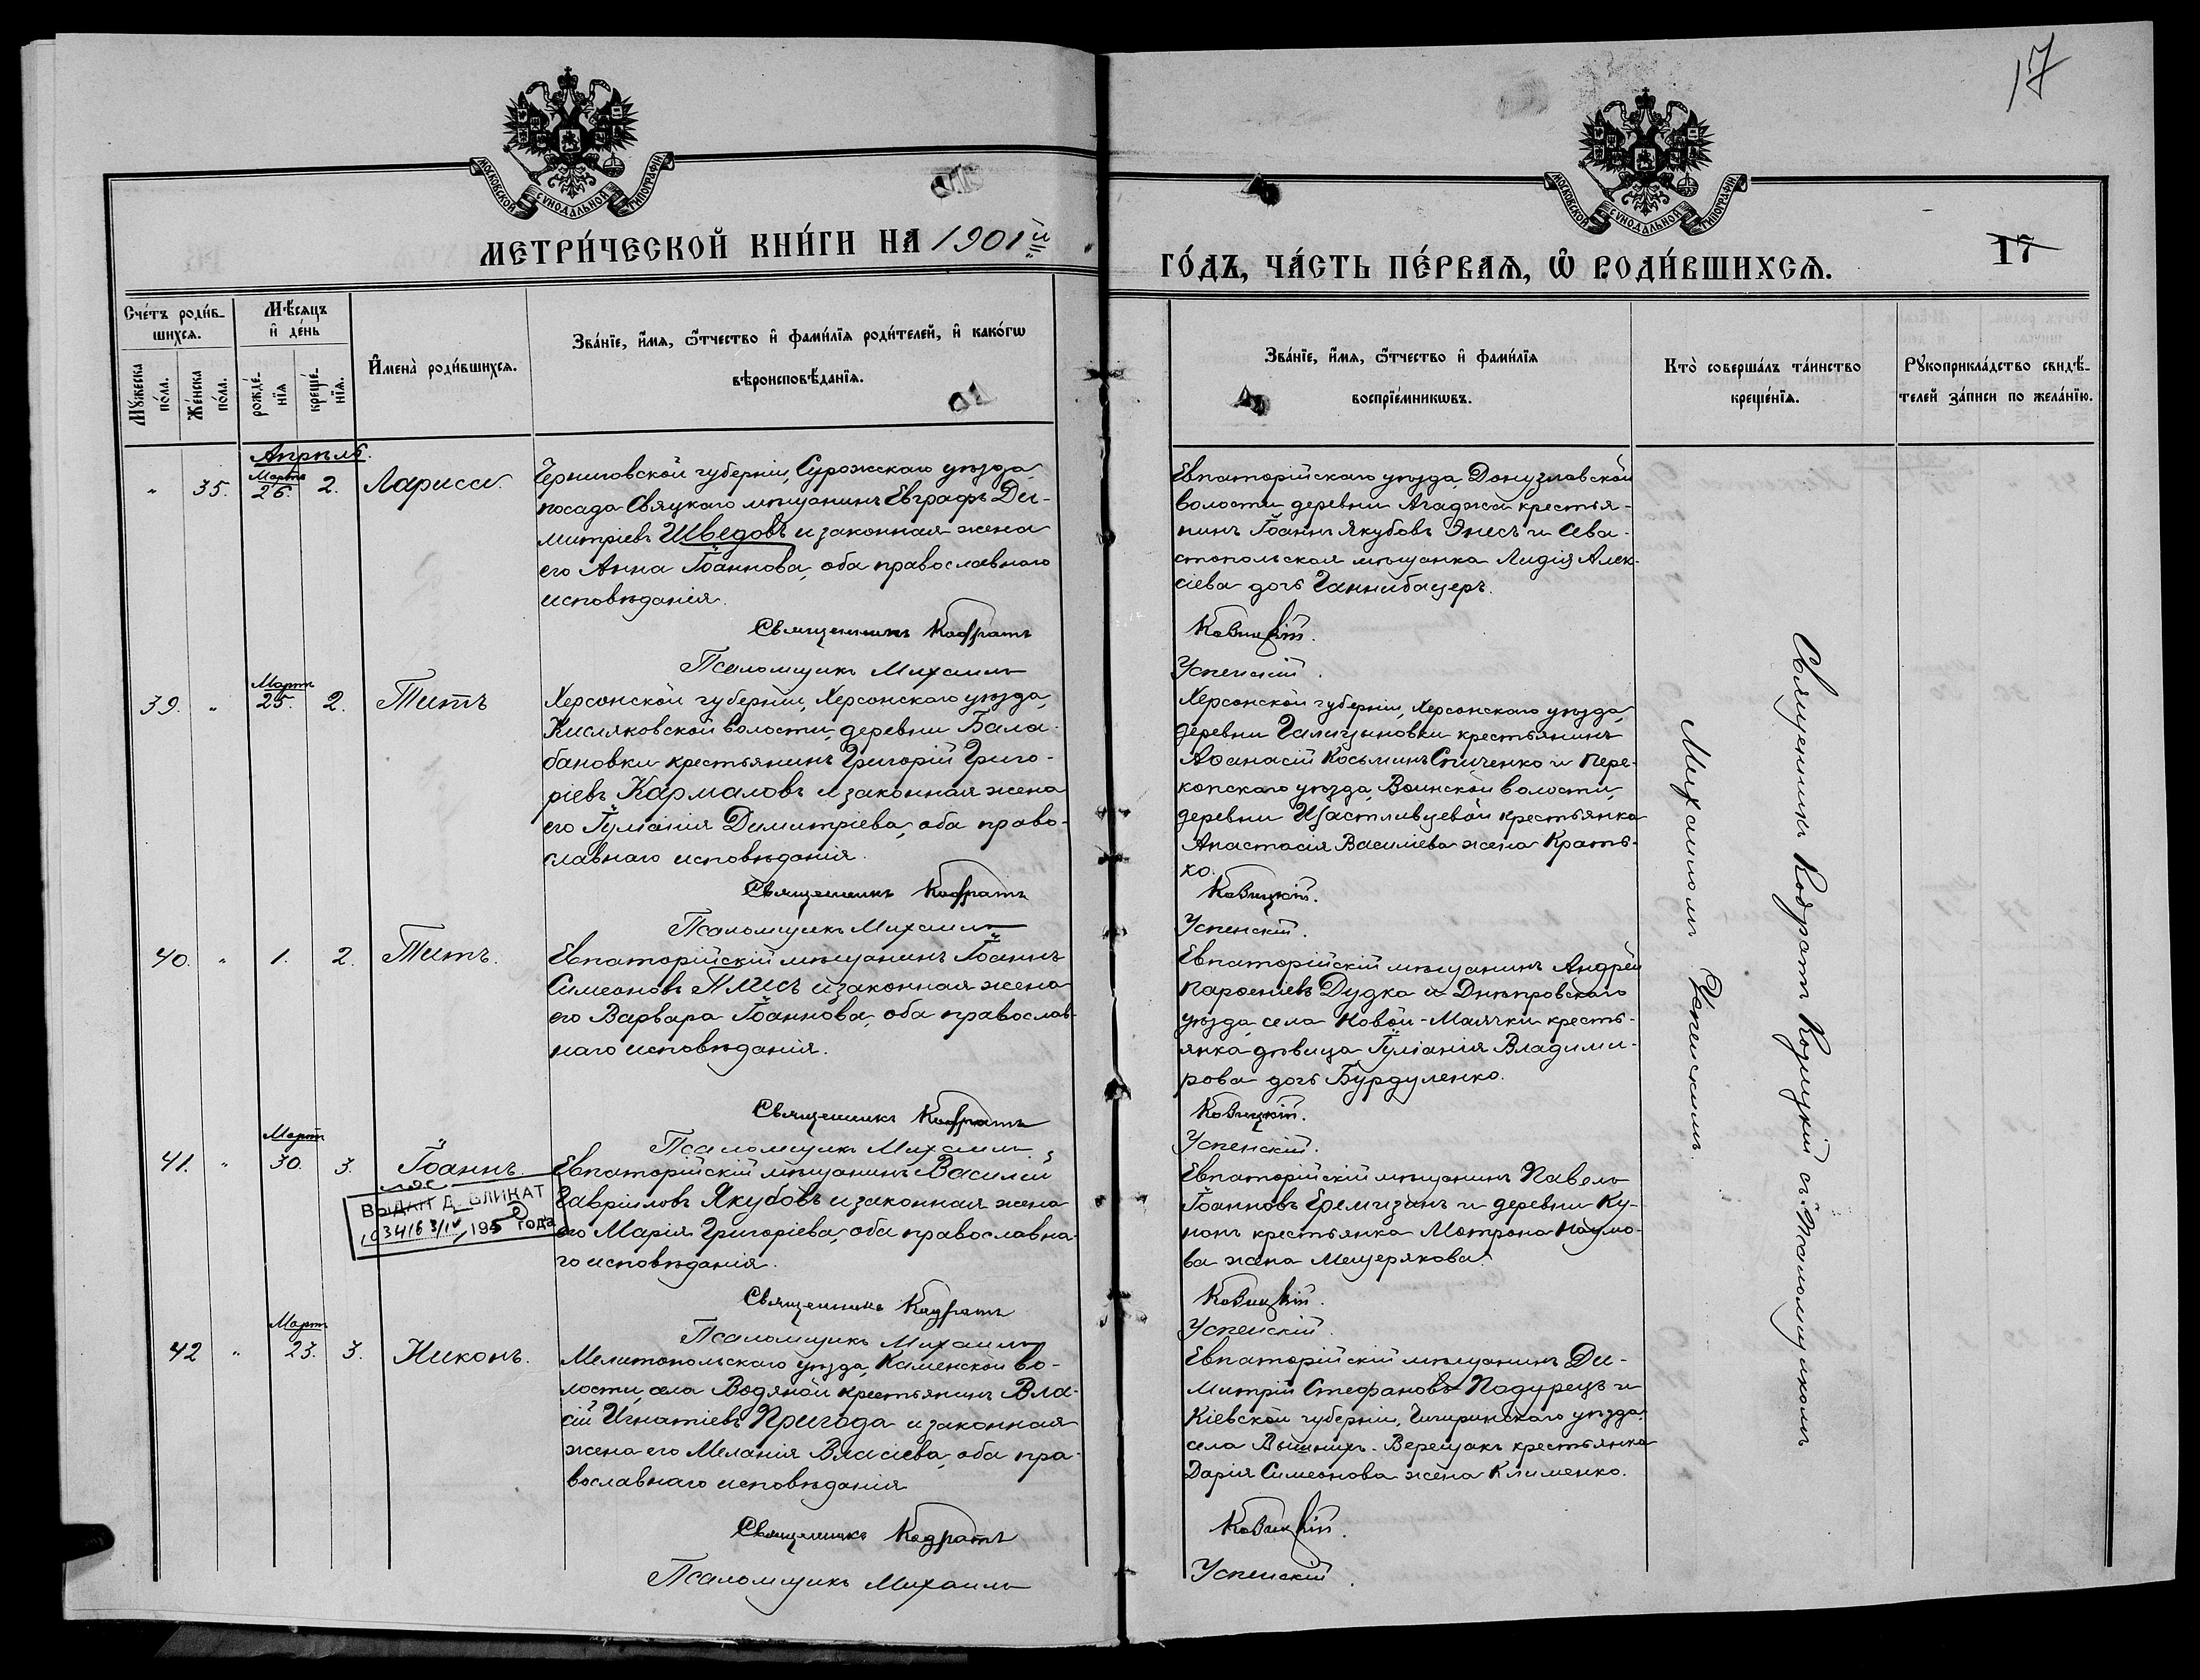 17
МОСКОВСКОЙ СУНОДАЛЬНОЙ ТИПОГРАФІИ
МОСКОВСКОЙ СУНОДАЛЬНОЙ ТИПОГРАФІИ
МЕТРИ́ЧЕСКОЙ КНИ́ГИ НА 1901й
ГО́ДЪ, ЧА́СТЬ ПЕ́РВАЯ, Ѡ҆ РОДИ́ВШИХСЯ.
17
Сче́тъ роди́в-
шихся.
Мꙋ́жеска
по́ла.
Же́нска
по́ла.
Мѣ́сяцъ
и҆ де́нь
рожде́-
нїя
креще́-
нїя.
И҆мена̀ роди́вшихся.
Зва́нїе, и҆́мя, ѻ҆́тчество и҆ фами́лїя роди́телей, и҆ како́гѡ
вѣроисповѣ́данїя.
Зва́нїе, и҆́мя, ѻ҆́тчество и҆ фами́лїя
воспрїе́мникѡвъ.
Кто̀ соверша́лъ та́инство
креще́нїя.
Рꙋкоприкла́дство свидѣ́-
телей за́писи по жела́нїю.
Апрѣль.
" 35. Мартъ 26. 2. Лариса.
Черниговской губерніи, Суражскаго уѣзда
посада Свяцкаго мѣщанинъ Евграфъ Ди-
митріевъ Шведовъ и законная жена
его Анна Іоаннова, оба православнаго
исповѣданія.
Священникъ Кодратъ
Псаломщикъ Михаилъ
Евпаторійскаго уѣзда, Донузлавской
волости деревни Агаджи крестья-
нинъ Іоаннъ Якубовъ Энесъ и Сева-
стопольская мѣщанка Лидія Алек-
сіева дочь Ганнибацеръ.
Ковицкій.
Успенскій.
39. " Мартъ 25. 2. Титъ
Херсонской губерніи, Херсонскаго уѣзда,
Кисляковской волости, деревни Бала-
бановки крестьянинъ Григорій Григо-
ріевъ Кармаловъ и законная жена
его Іуліанія Димитріева, оба право-
славнаго исповѣданія.
Священникъ Кодратъ
Псаломщикъ Михаилъ
Херсонской губерніи, Херсонскаго уѣзда,
деревни Галицыновки крестьянинъ
Аѳанасій Косьминъ Спиченко и Пере-
копскаго уѣзда, Воинской волости,
деревни Щастливцевой крестьянка
Анастасія Василіева жена Крать-
ко.
Ковицкій.
Успенскій.
40. " 1. 2. Титъ.
Евпаторійскій мѣщанинъ Іоаннъ
Симеоновъ Плисъ и законная жена
его Варвара Іоаннова, оба православ-
наго исповѣданія.
Священникъ Кодратъ
Псаломщикъ Михаилъ
Евпаторійскій мѣщанинъ Андрей
Парѳеніевъ Дудка и Днѣпровскаго
уѣзда, села Новой-Маячки кресть-
янка дѣвица Іуліанія Владими-
рова дочь Бурдуленко.
Ковицкій.
Успенскій.
41. " Мартъ 30. 3. Іоаннъ.
ВЫДАН ДУБЛИКАТ
103416 3/IV 195 ГОДА
Евпаторійскій мѣщанинъ Василій
Гавріиловъ Якубовъ и законная жена
его Марія Григоріева, оба православна-
го исповѣданія.
Священникъ Кодратъ
Псаломщикъ Михаилъ
Евпаторійскій мѣщанинъ Павелъ
Іоанновъ Еремизинъ и деревни Ку-
нанъ крестьянка Матрона Наумо-
ва жена Мещерякова.
Ковицкій.
Успенскій.
42 " Мартъ 23. 3. Никонъ.
Мелитопольскаго уѣзда, Каменской во-
лости, села Водяной крестьянинъ Вла-
сій Игнатіевъ Пригода и законная
жена его Меланія Власіева, оба пра-
вославнаго исповѣданія
Священникъ Кодратъ
Псаломщикъ Михаилъ
Евпаторійскій мѣщанинъ Ди-
митрій Стефановъ Подурецъ и
Кіевской губерніи, Чигиринскаго уѣзда,
села Вышнихъ-Верещакъ крестьянка
Дарія Симеонова жена Клименко.
Ковицкій.
Успенскій.
Священникъ Кодратъ Ковицкій съ псаломщикомъ
Михаиломъ Успенскимъ.